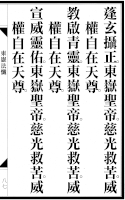 蓬玄攝正東嶽聖帝。慈光救苦。威
權自在天尊
教啟青靈東嶽聖帝。慈光救苦。威
權自在天尊
宣威靈佑東嶽聖帝。慈光救苦。威
權自在天尊
東嶽法懺
八七